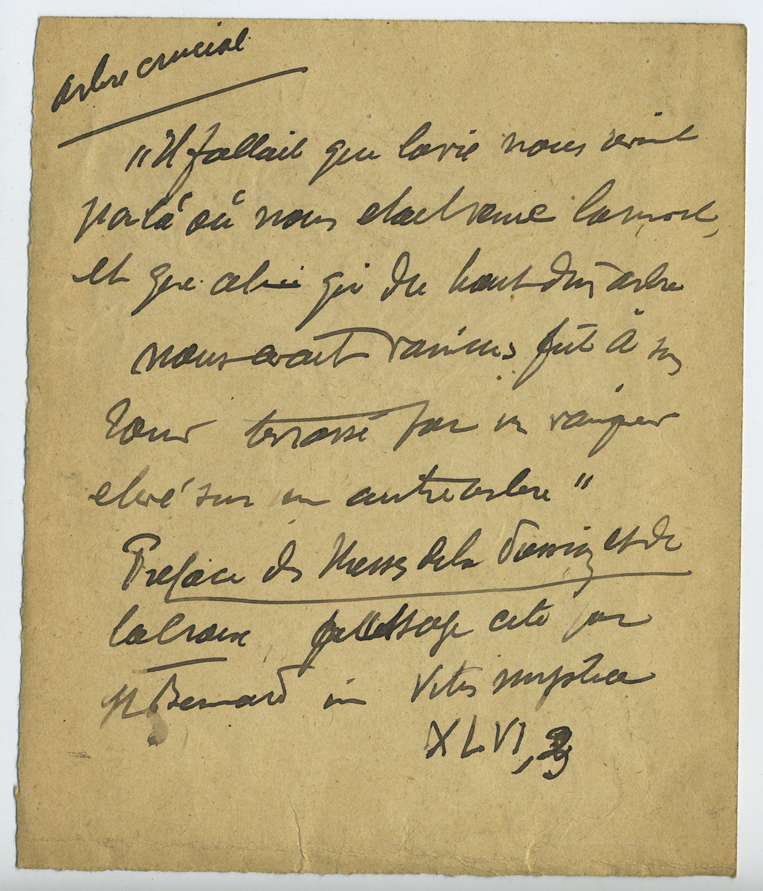 arbre crucial
"Il fallait que la vie nous vint
par là où nous était venue la mort,
et que celui qui du haut d'un arbre
nous avait vaincus fut à son
tour terrassé par un vainqueur
elevé sur un autre arbre"
Preface des Messes de la Passion et de
la Croix passage cité par
St Bernard in Vitis mystica
XLVI,